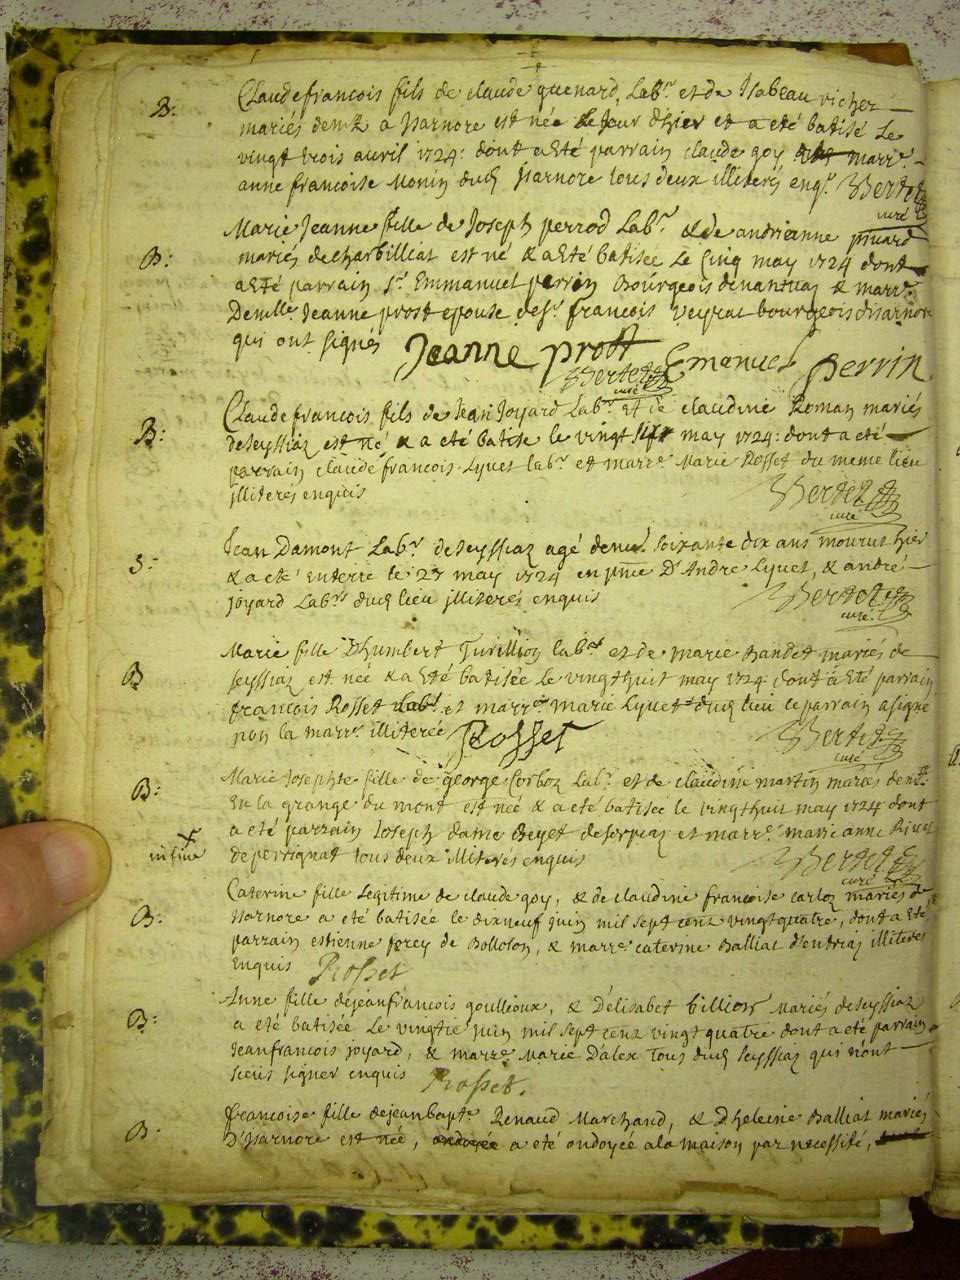 B: Claudefrancois fils de claude guenard, Labr. et de Isabeau vicher
mariés demt. a Isarnore est née le jour d'hier et a eté batisé Le
vingt trois auril 1724: dont a Eté parrain claude goy marre.
anne francoise Monin dud. Isarnore tous deux illiterés enqs. Bertet
curé
Marie Jeanne fille de Joseph perrod Labr. & de andrieanne pinard
B: mariés decharbilliat est né & a Eté batisée Le Cinq may 1724 dont
a Eté parrain Sr. Emmanuel perrin Bourgeois denantua & marre.
Demlle. Jeanne prost epouse desr. francois veyrat bourgeois disarnore
qui ont signés Jeanne Prost Emanuel Perrin
Bertet
curé
Claudefrancois fils de Jean Joyard Labr. Et de claudine Roman mariés
B: deseyssiaz est né & a eté batise le vingt sept may 1724: dont a eté
parrain claudefrancois Lyuet labr. et marre. Marie Rosset du meme lieu
jlliterés enquis Bertet
curé
S: Jean Damont Labr. deseyssiaz agé denv. soixante dix ans mourut hier
& a eté Enterré le 27 may 1724 en pnce D'Andre Lyuet, & andré
joyard Labrs. dud. lieu jlliterés enquis Bertet
curé
Marie fille D'humbert Turillion labr. et de marie Bandet mariés de
B seyssiaz est née & a Eté batisée Le vingthuit may 1724 dont a Eté parrain
francois Rosset Labr. et marre. marie Lyuet dud. lieu le parrain a signé
non la marre. illiterée Rosset Bertet
curé
Marie Josephte fille de george Corboz Labr. et de claudine martin mariés demt.
B: En la grange du mont est née & a eté batisée le vingthuit may 1724 dont
a eté parrain Joseph dame et marre. marie anne
infine de perrignat tous deux illiterés enquis Bertet
curé
Caterine fille Legitime de claude goy, & de claudine francoise carloz mariés de
B: Isarnore a eté batisée le dixneuf juin mil sept cenz vingtquatre, dont a Eté
parrain estienne de Bolloson, & marre. caterine Balliat illiterés
Enquis Rosset
Anne fille dejeanfrancois goullioux, & D'élisabet billion Mariés deseyssiaz
B: a eté batisée Le vingtie juin mil sept cenz vingtquatre dont a eté parrain
Jeanfrancois joyard, & marre. Marie Dalex Tous dud. Seyssiaz qui n'ont
sceus signer enquis Rosset.
francoise fille dejeanbapte. Renaud Marchand, & D'heleine Balliat mariés
B. D'Isarnore est née, a eté ondoyée a la maison par necessité,